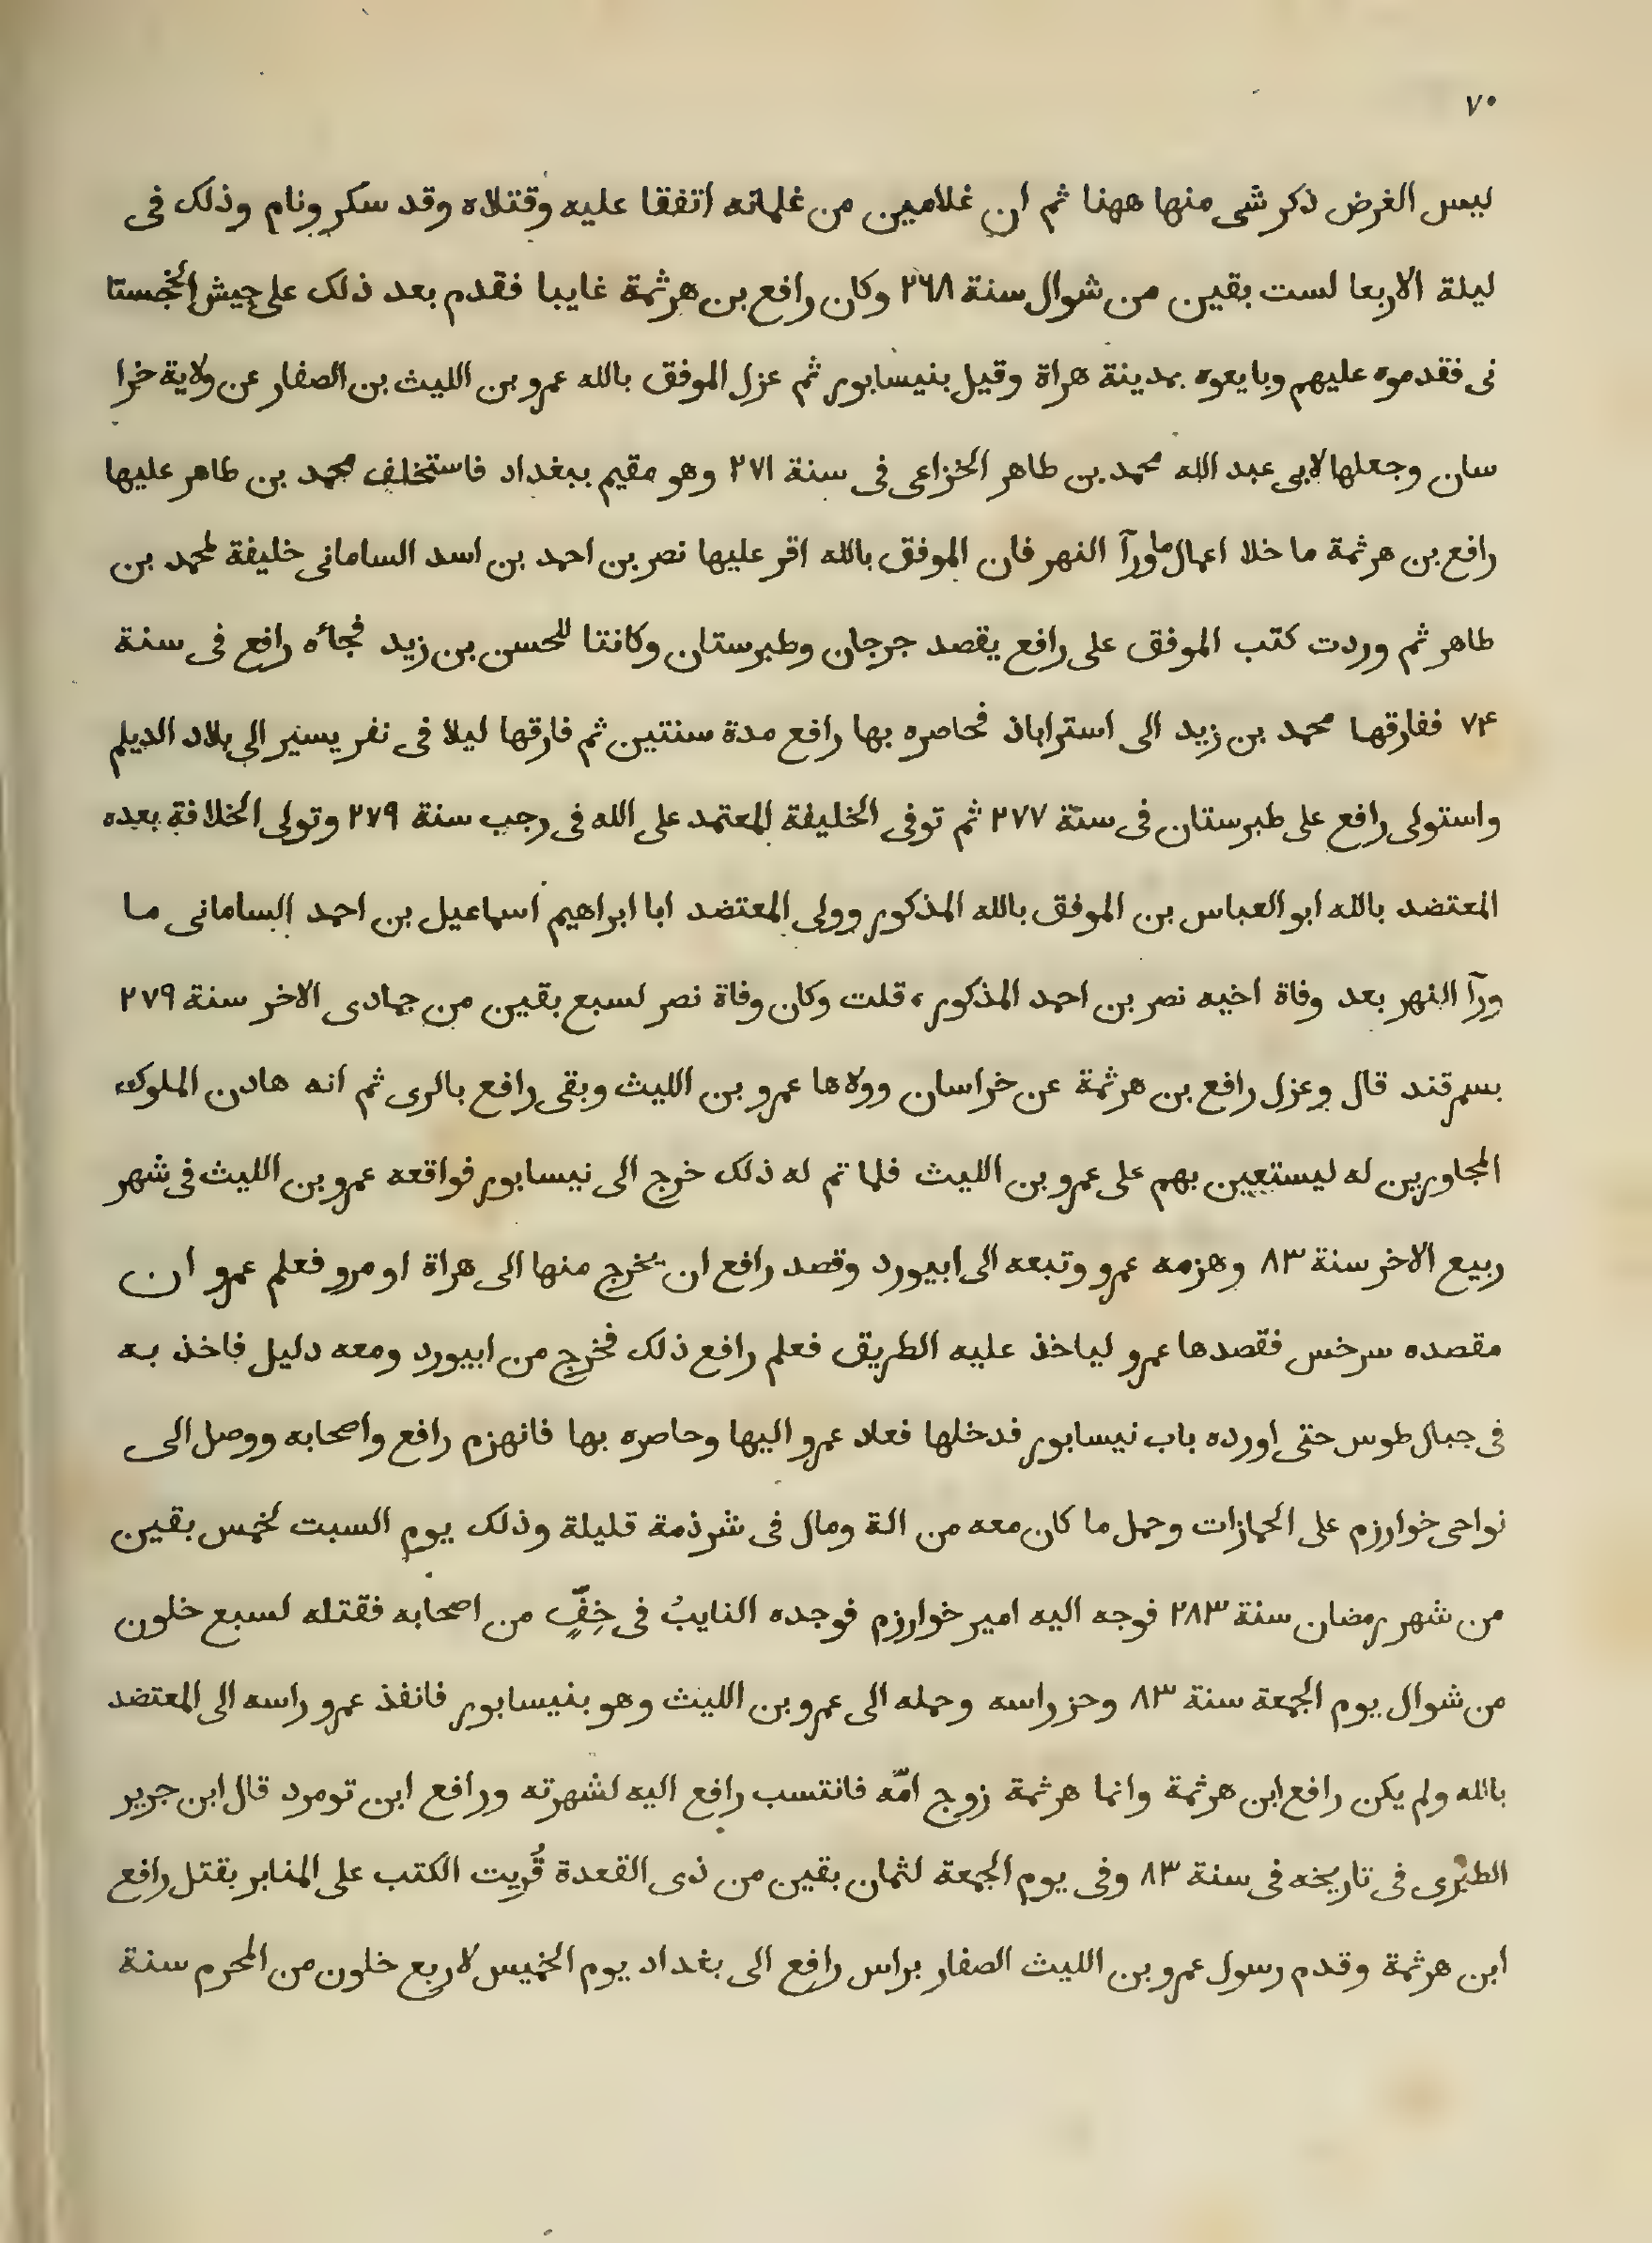 ٧٠
ليس الغرض ذكر شى منها ههنا ثم ان غلامين من غلمانه اتفقا عليه وقتلاه وقد سكر ونام وذلك فى
ليلة الاربعا لست بقين من شوال سنة ٢٦٨ وكان رافع بن هرثمة غايبا فقدم بعد ذلك على جيش الخجستا
نى فقدموه عليهم وبايعوه بمدينة هراة وقيل بنيسابور ثم عزل الموفق بالله عمرو بن الليث بن الصفار عن ولاية خرا
سان وجعلها لابى عبد الله محمد بن طاهر الخزاعى فى سنة ٢٧١ وهو مقيم ببغداد فاستخلف محمد بن طاهر عليها
رافع بن هرثمة ما خلا اعمال ماورآ النهر فان الموفق بالله اقر عليها نصر بن احمد بن اسد السامانى خليفة لمحمد بن
طاهر ثم وردت كتب الموفق على رافع يقصد جرجان وطبرستان وكانتا للحسن بن زيد فجائه رافع فى سنة
٧۴ ففارقها محمد بن زيد الى استراباذ فحاصره بها رافع مدة سنتين ثم فارقها ليلا فى نفر يسير الى بلاد الديلم
واستولى رافع على طبرستان فى سنة ٢٧٧ ثم توفى الخليفة المعتمد على الله فى رجب سنة ٢٧٩ وتولى الخلافة بعده
المعتضد بالله ابو العباس بن الموفق بالله المذكور وولى المعتضد ابا ابراهيم اسماعيل بن احمد السامانى ما
ورآ النهر بعد وفاة اخيه نصر بن احمد المذكور، قلت وكان وفاة نصر لسبع بقين من جمادى الاخر سنة ٢٧٩
بسمرقند قال وعزل رافع بن هرثمة عن خراسان وولاها عمرو بن الليث وبقى رافع بالرى ثم انه هادن الملوك
المجاورين له ليستعين بهم على عمرو بن الليث فلما تم له ذلك خرج الى نيسابور فواقعه عمرو بن الليث فى شهر
ربيع الاخر سنة ٨٣ وهزمه عمرو وتبعه الى ابيورد وقصد رافع ان يخرج منها الى هراة او مرو فعلم عمرو ان
مقصده سرخس فقصدها عمرو لياخذ عليه الطريق فعلم رافع ذلك فخرج من ابيورد ومعه دليل فاخذ به
فى جبال طوس حتى اورده باب نيسابور فدخلها فعاد عمرو اليها وحاصره بها فانهزم رافع واصحابه ووصل الى
نواحى خوارزم على الجمازات وحمل ما كان معه من الة ومال فى شرذمة قليلة وذلك يوم السبت لخمس بقين
من شهر رمضان سنة ٢٨٣ فوجه اليه امير خوارزم فوجده النايبُ فى خِفٍّ من اصحابه فقتله لسبع خلون
من شوال يوم الجمعة سنة ٨٣ وحز راسه وحمله الى عمرو بن الليث وهو بنيسابور فانفذ عمرو راسه الى المعتضد
بالله ولم يكن رافع ابن هرثمة وانما هرثمة زوج امّه فانتسب رافع اليه لشهرته ورافع ابن تومرد قال ابن جرير
الطبرى فى تاريخه فى سنة ٨٣ وفى يوم الجمعة لثمان بقين من ذى القعدة قُريت الكتب على المنابر بقتل رافع
ابن هرثمة وقدم رسول عمرو بن الليث الصفار براس رافع الى بغداد يوم الخميس لاربع خلون من المحرم سنة